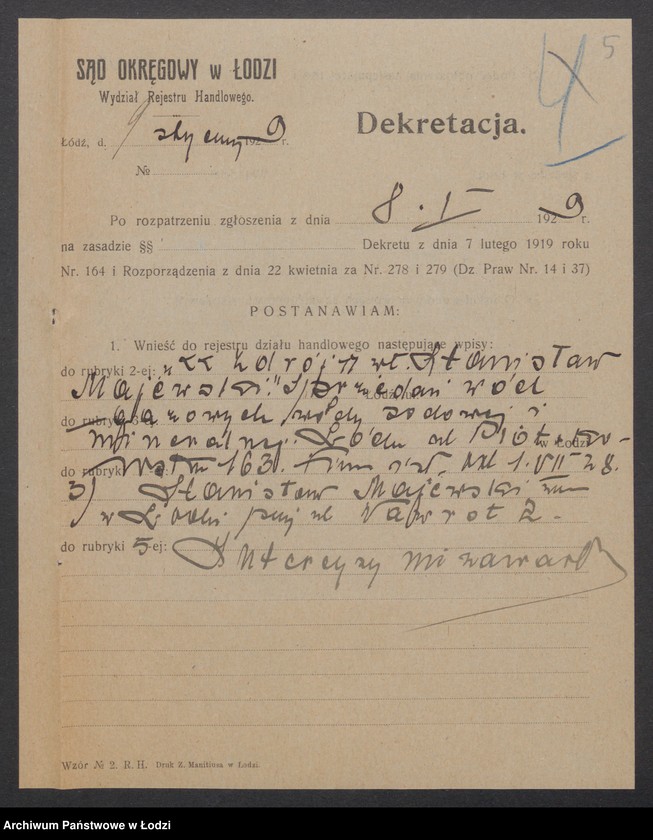 5
4
SĄD OKRĘGOWY w ŁODZI
Wydział Rejestru Handlowego.
Dekretacja.
Łódź, d. 9 stycznia 1929 r.
№
Po rozpatrzeniu zgłoszenia z dnia 8. I 1929 r.
na zasadzie §§ Dekretu z dnia 7 lutego 1919 roku
Nr. 164 i Rozporządzenia z dnia 22 kwietnia za Nr. 278 i 279 (Dz. Praw Nr. 14 i 37)
POSTANAWIAM:
1. Wnieść do rejestru działu handlowego następujące wpisy:
do rubryki 2-ej: „Zdrój" wł. Stanisław
Majewski." Sprzedaż wód
do rubryki 3-ej: gazowych, wody sodowej i
mineralnej. Łódź ul Piotrkow- w Łodzi
do rubryki ska 163. Firma istn. od 1.VII-28.
3) Stanisław Majewski zam
w Łodzi przy ul Nawrot 2.
do rubryki 5-ej: Intercyzy nie zawarł
Wzór № 2. R. H. Druk Z. Manitiusa w Łodzi.
Archiwum Państwowe w Łodzi